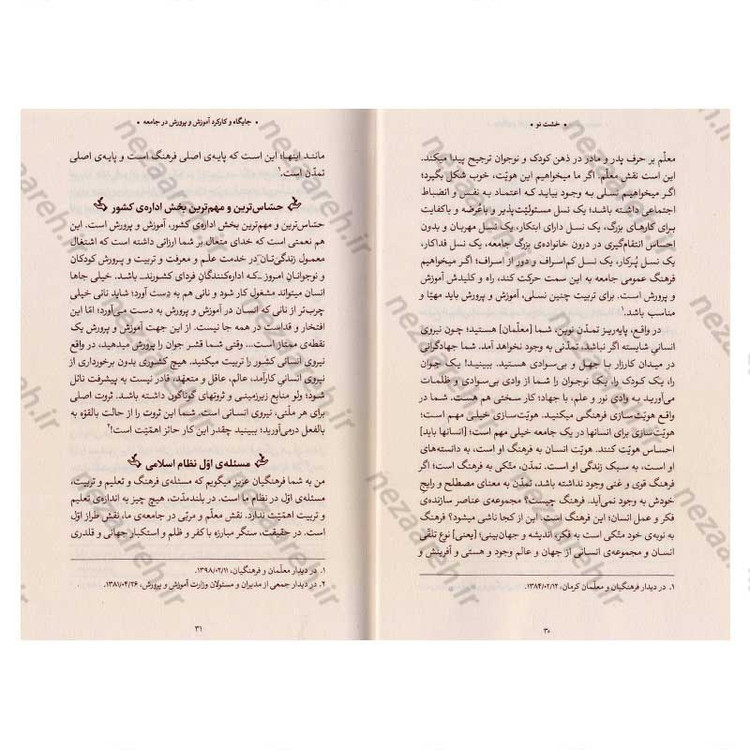 • خشت نو •
معلّم بر حرف پدر و مادر در ذهن کودک و نوجوان ترجیح پیدا میکند.
این است نقش معلّم. اگر ما میخواهیم این هویّت، خوب شکل بگیرد؛
اگر میخواهیم نسلی به وجود بیاید که اعتماد به نفس و انضباط
اجتماعی داشته باشد؛ یک نسل مسئولیّت‌پذیر و باعُرضه و باکفایت
برای کارهای بزرگ، یک نسل دارای ابتکار، یک نسل مهربان و بدون
احساس انتقام‌گیری در درون خانواده‌ی بزرگ جامعه، یک نسل فداکار،
یک نسل پُرکار، یک نسل کم‌اسراف و دور از اسراف؛ اگر میخواهیم
فرهنگ عمومی جامعه به این سمت حرکت کند، راه و کلیدش آموزش
و پرورش است. برای تربیت چنین نسلی، آموزش و پرورش باید مهیّا و
مناسب باشد.۱
در واقع، پایه‌ریز تمدّن نوین، شما [معلّمان] هستید؛ چون نیروی
انسانیِ شایسته اگر نباشد، تمدّنی به وجود نخواهد آمد. شما جهادگرانی
در میدان کارزار با جهل و بی‌سوادی هستید. ببینید! یک جوان
را، یک کودک را، یک نوجوان را شما از وادی بی‌سوادی و ظلمات
می‌آورید به وادی نور و علم، با جهاد؛ کار سختی هم هست. شما در
واقع هویّت‌سازی فرهنگی میکنید. هویّت‌سازی خیلی مهم است؛
هویّت‌سازی برای انسانها در یک جامعه خیلی مهم است؛ انسانها [باید]
احساس هویّت کنند. هویّت انسان به فرهنگ او است، به دانسته‌های
او است، به سبک زندگی او است. تمدّن، متّکی به فرهنگ است؛ اگر
فرهنگ قوی و غنی وجود نداشته باشد، تمدّن به معنای مصطلح و رایجِ
خودش به وجود نمی‌آید. فرهنگ چیست؟ مجموعه‌ی عناصر سازنده‌ی
فکر و عمل انسان؛ این فرهنگ است. این از کجا ناشی میشود؟ فرهنگ
به نوبه‌ی خود متّکی است به فکر و اندیشه و جهان‌بینی؛ [یعنی] نوع تلقّی
انسان و مجموعه‌ی انسانی از جهان و عالم وجود و هستی و آفرینش و
۱. در دیدار فرهنگیان و معلّمان کرمان، ۱۳۸۴/۰۲/۱۲.
۳۰
• جایگاه و کارکرد آموزش و پرورش در جامعه •
مانند اینها؛ این است که پایه‌ی اصلی فرهنگ است و پایه‌ی اصلی
تمدّن است.۱
حسّاس‌ترین و مهم‌ترین بخش اداره‌ی کشور
حسّاس‌ترین و مهم‌ترین بخش اداره‌ی کشور، آموزش و پرورش است. این
هم نعمتی است که خدای متعال بر شما ارزانی داشته است که اشتغال
معمول زندگی‌تان در خدمت علم و معرفت و تربیت و پرورش کودکان
و نوجوانان امروز ـ که اداره‌کنندگان فردای کشورند ـ باشد. خیلی جاها
انسان میتواند مشغول کار شود و نانی هم به دست آورد؛ شاید نانی خیلی
چرب‌تر از نانی که انسان در آموزش و پرورش به دست می‌آورد؛ امّا این
افتخار و قداست در همه جا نیست. از این جهت آموزش و پرورش یک
نقطه‌ی ممتاز است... وقتی شما قشر جوان را پرورش میدهید، در واقع
نیروی انسانی کشور را تربیت میکنید. هیچ کشوری بدون برخورداری از
نیروی انسانیِ کارآمد، عالم، عاقل و متعهّد، قادر نیست به پیشرفت نائل
شود؛ ولو منابع زیرزمینی و ثروتهای گوناگون داشته باشد. ثروت اصلی
برای هر ملّتی، نیروی انسانی است. شما این ثروت را از حالت بالقوّه به
بالفعل درمی‌آورید؛ ببینید چقدر این کار حائز اهمّیّت است!۲
مسئله‌ی اوّل نظام اسلامی
من به شما فرهنگیان عزیز میگویم که مسئله‌ی فرهنگ و تعلیم و تربیت،
مسئله‌ی اوّل در نظام ما است. در بلندمدّت، هیچ چیز به اندازه‌ی تعلیم
و تربیت اهمّیّت ندارد. نقش معلّم و مربّی در جامعه‌ی ما، نقش طراز اوّل
است. در حقیقت، سنگر مبارزه با کفر و ظلم و استکبار جهانی و قلدری
۱. در دیدار معلّمان و فرهنگیان، ۱۳۹۸/۰۲/۱۱.
۲. در دیدار جمعی از مدیران و مسئولان وزارت آموزش و پرورش، ۱۳۸۱/۰۴/۲۶.
۳۱
nezaareh.ir